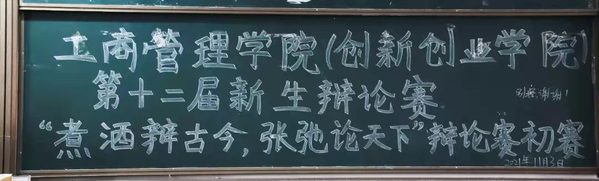 工商管理学院(创新创业学院)
第十二届新生辩论赛
别擦,谢谢!
“煮酒辩古今,张弛论天下”辩论赛初赛
2021年11月3日